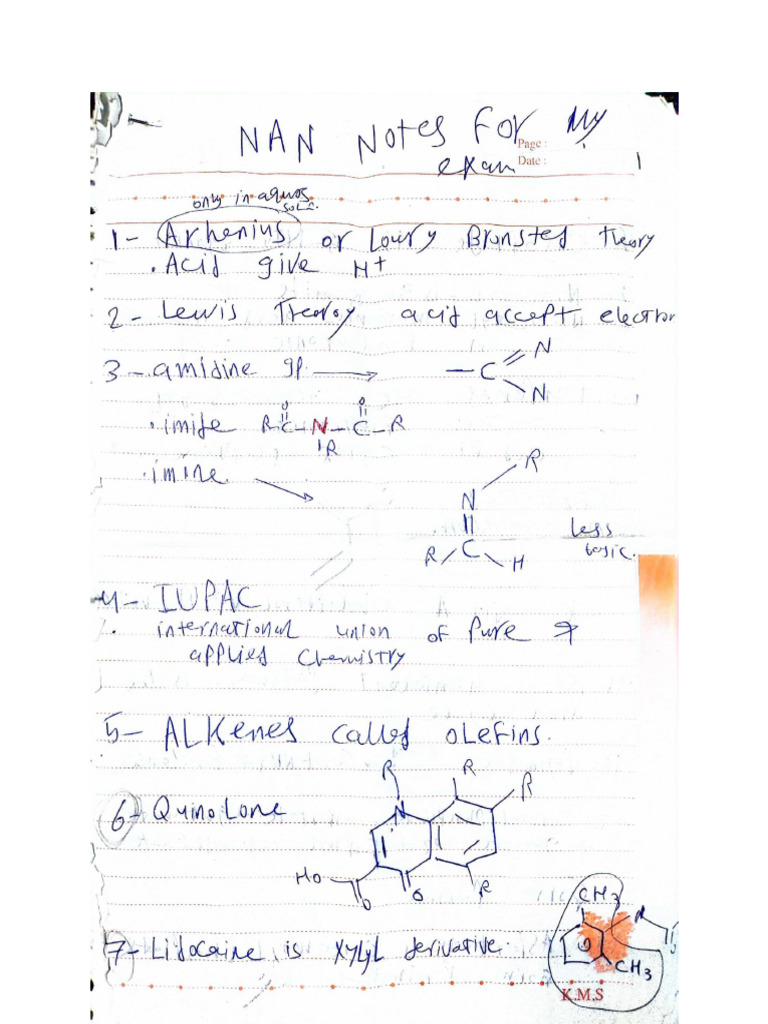 NAN Notes For My
Page :
exam
Date :
1
only in aquos
sol.
1- Arhenius or Lowry Bronsted Theory
. Acid give H+
2- Lewis Theory acid accept electron
3- amidine gp. → - C = N
N
. imide R - C - N - C - R
O O
R
. imine →
R
N
R C H
less
basic.
4- IUPAC
. international union of Pure &
applied Chemistry
5- ALKenes called oLeFins.
6- QuinoLone
R R R
N
HO O O R
7- Lidocaine is XyLyL derivative.
CH3
N
CH3
K.M.S